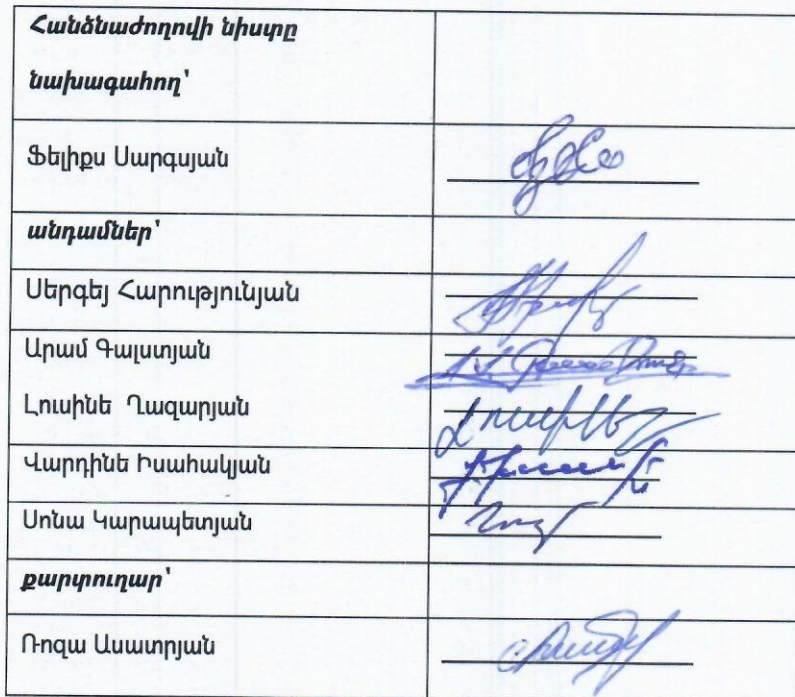 Հանձնաժողովի նիստը
նախագահող՝
Ֆելիքս Սարգսյան
անդամներ՝
Սերգեյ Հարությունյան
Արամ Գալստյան
Լուսինե Ղազարյան
Վարդինե Իսահակյան
Սոնա Կարապետյան
քարտուղար՝
Ռոզա Ասատրյան